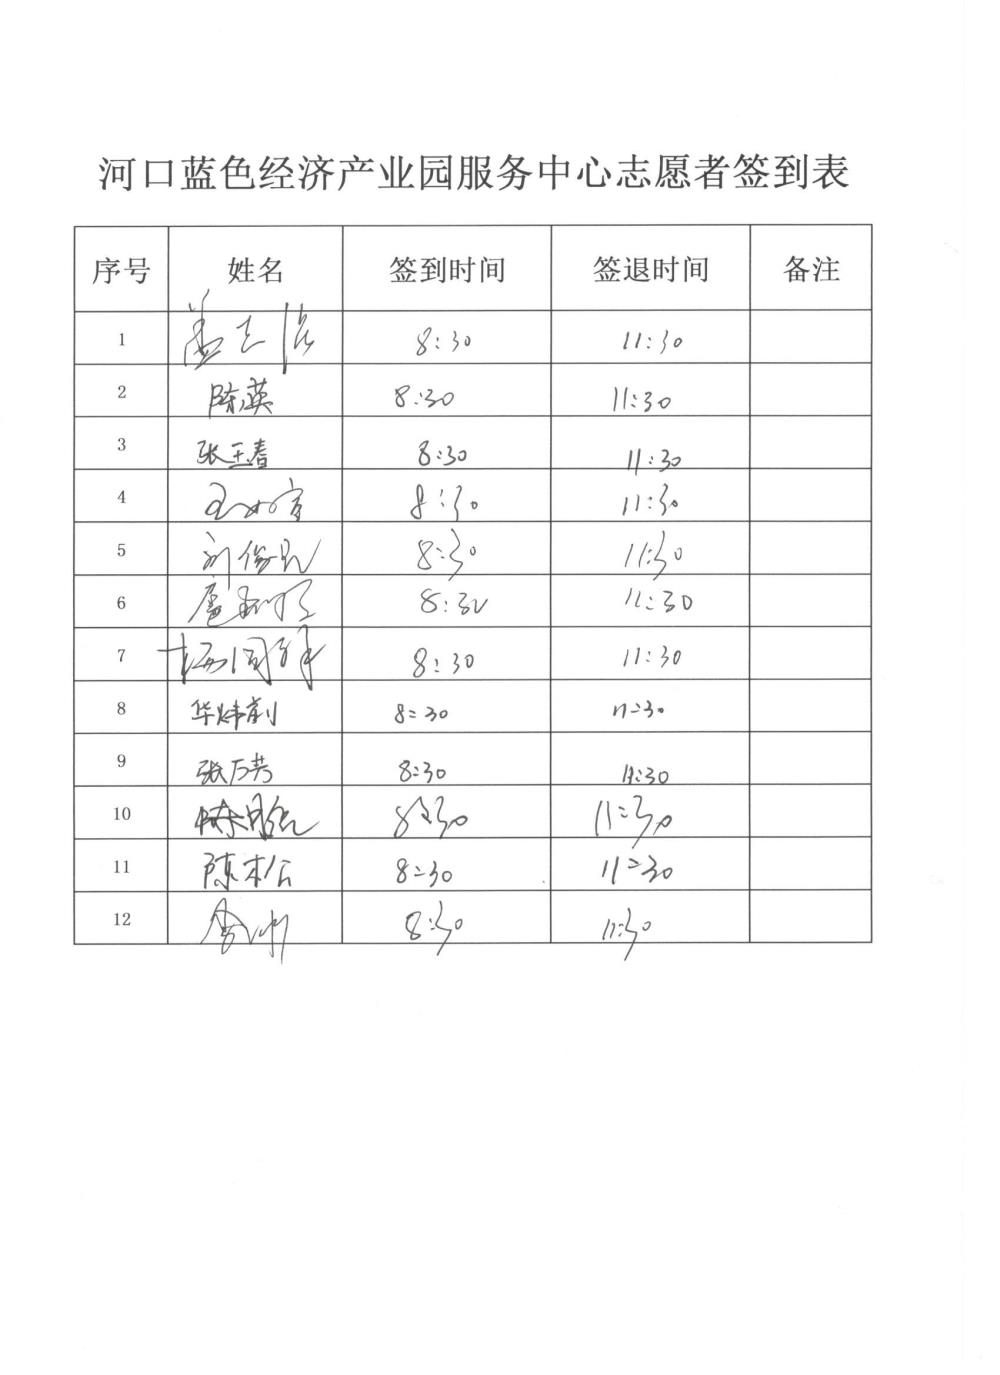 河口蓝色经济产业园服务中心志愿者签到表
序号 姓名 签到时间 签退时间 备注
1 8:30 11:30
2 陈英 8:30 11:30
3 张玉春 8:30 11:30
4 8:30 11:30
5 8:30 11:30
6 8:30 11:30
7 8:30 11:30
8 8:30 11:30
9 张万芳 8:30 11:30
10 8:30 11:30
11 陈木公 8:30 11:30
12 8:30 11:30